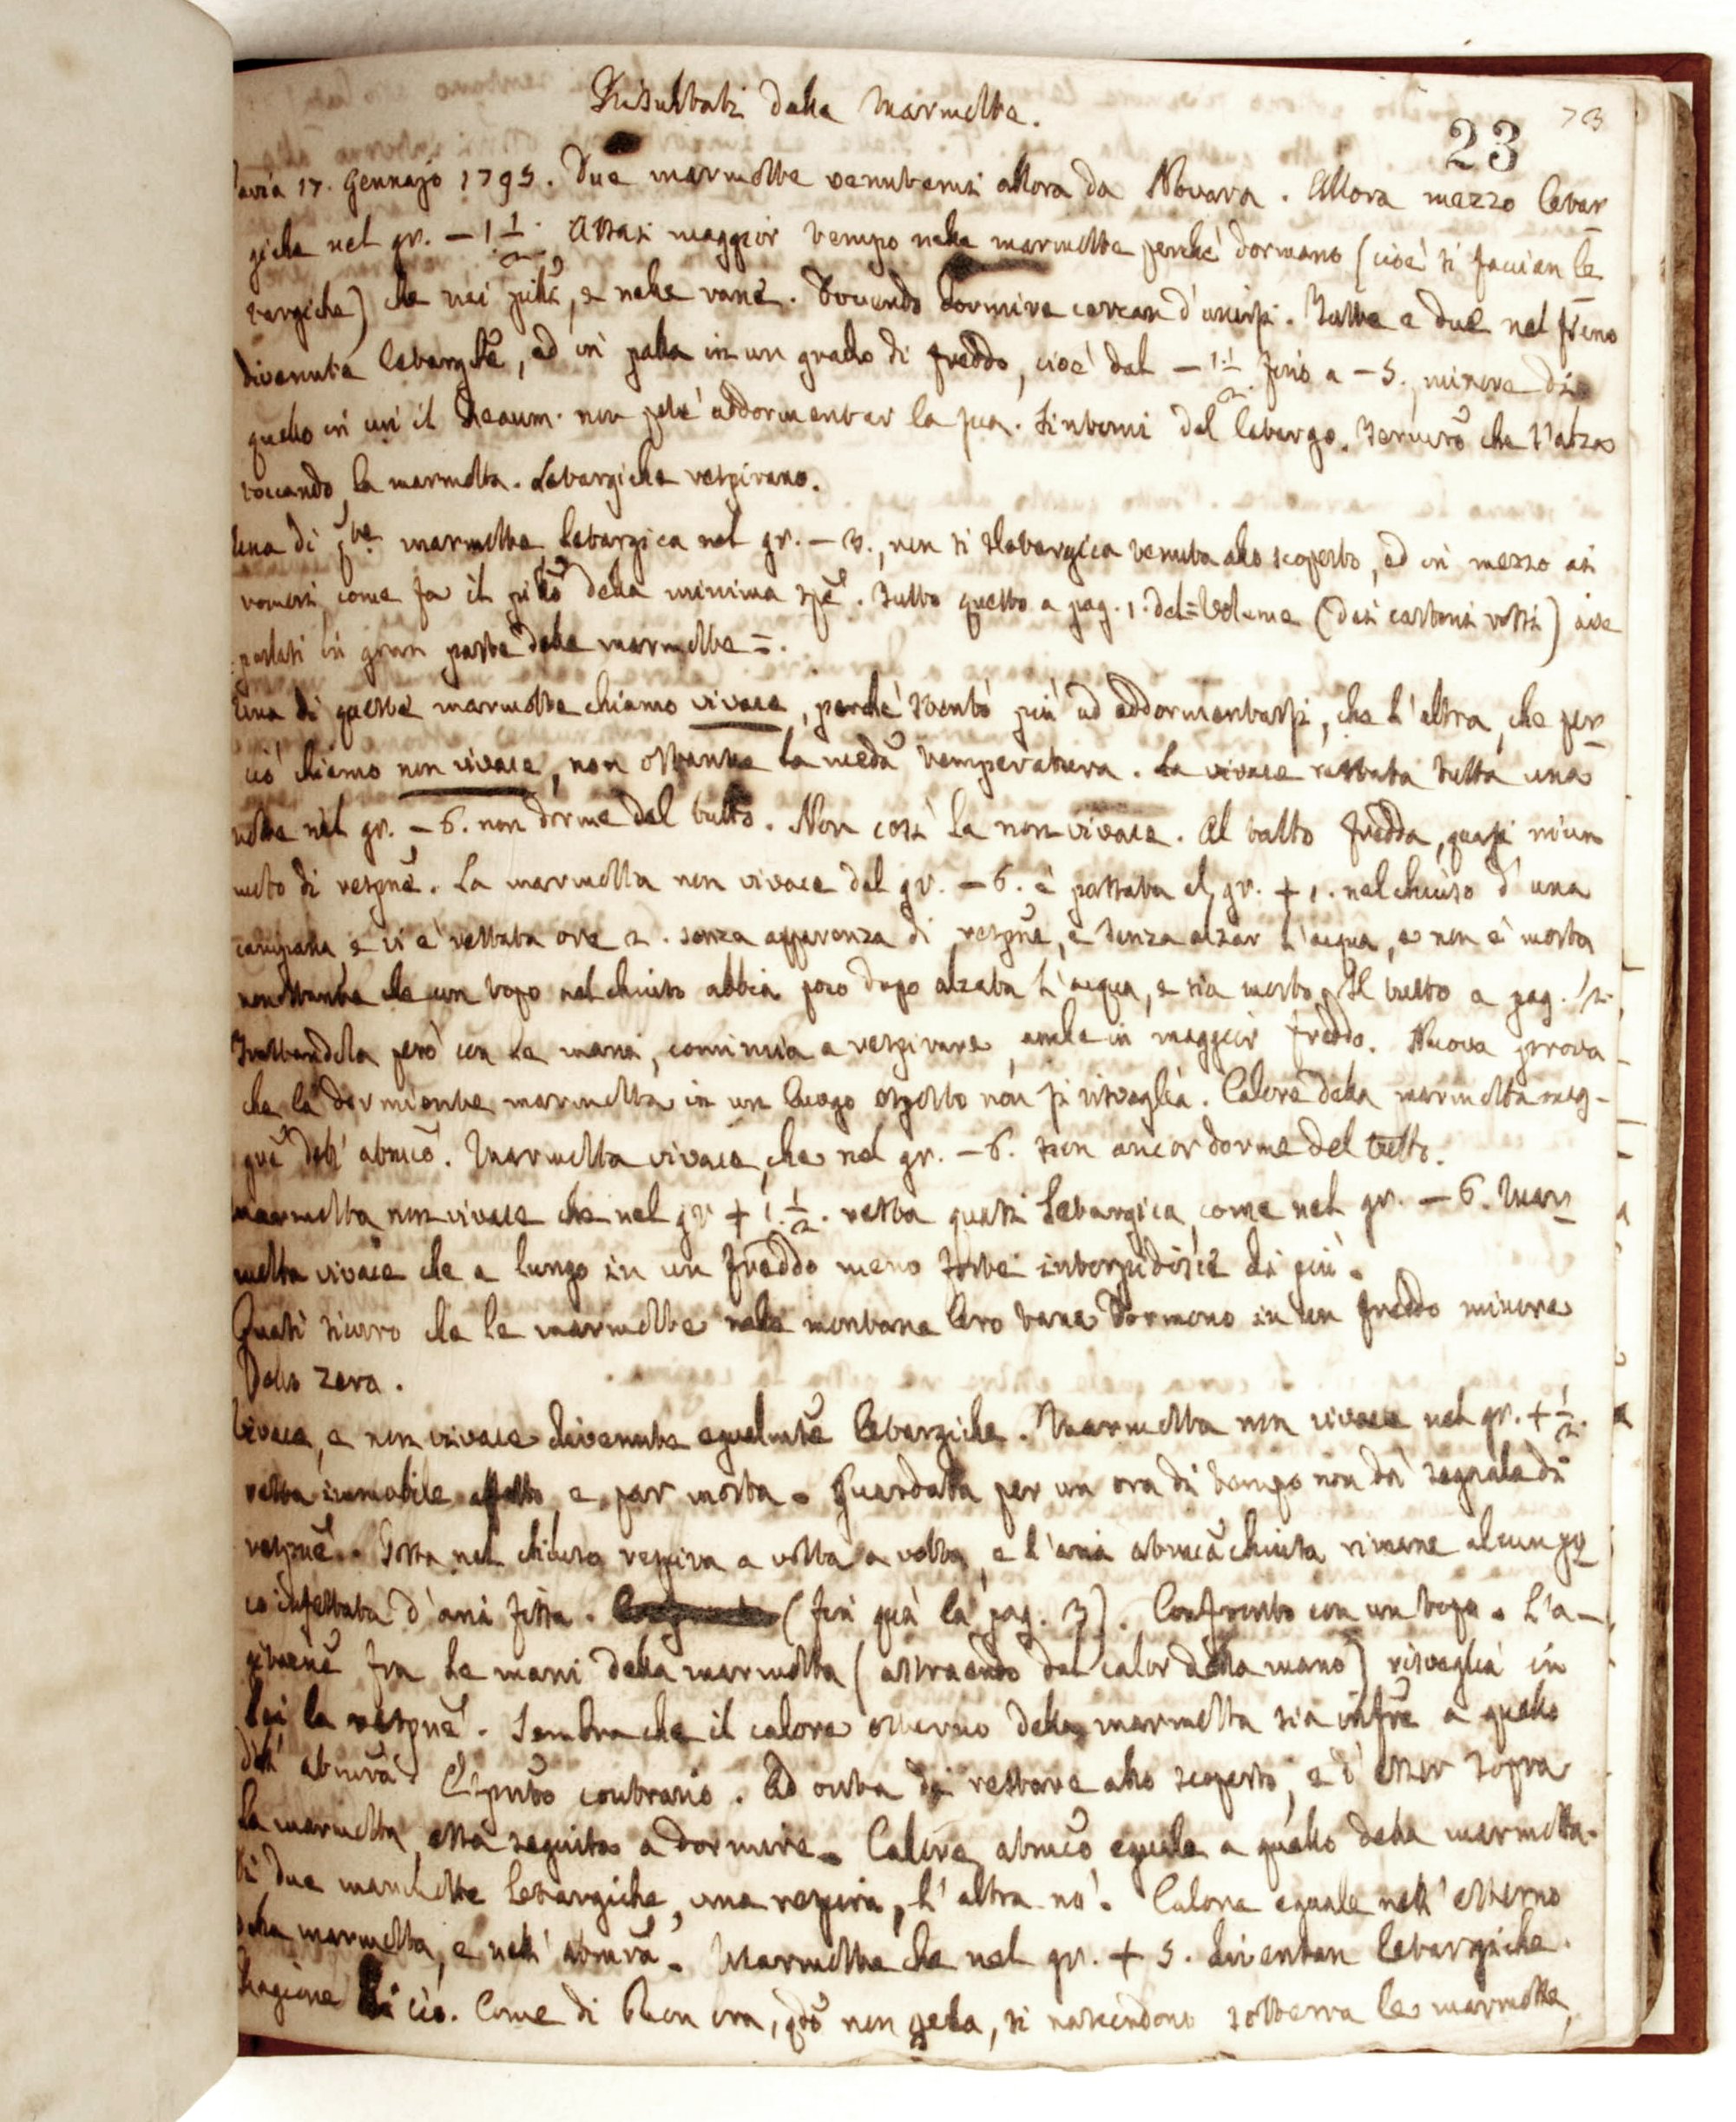 Risultati dalle Marmotte.
23
73
Pavia 17. Gennajo 1795. Due marmotte venutemi allora da Novara. Allora mezzo letar-
giche nel gr. – 1 1/2. Assai maggior tempo nelle marmotte perché dormano (cioè si faccian le-
targiche) che nei , e nelle rane. Dovendo dormire cercan d'unirsi. Tutte e due nel fieno
divenute letargiche, ed in palla in un grado di freddo, cioè dal – 1 1/2 fino a – 5. minore di
quello in cui il Reaum. non poté addormentar la sua. Sintomi del letargo. che s'alza
toccando la marmotta. Letargiche respirano.
Una di q.te marmotte letargica nel gr. – 3., non si sletargica venuta allo scoperto, ed in mezzo ai
romori, come fa il della minima spē. Tutto questo a pag. 1. del = Volume (dai cartoni rossi) ove
parlasi in gran parte delle marmotte =.
Una di queste marmotte chiamo vivace, perché stentò più ad addormentarsi, che l'altra, che per-
ciò chiamo non vivace, non ostante la medā temperatura. La vivace restata tutta una
notte nel gr. – 6. non dorme del tutto. Non così la non vivace. Al tatto fredda, quasi niun
moto di respnē. La marmotta non vivace dal gr. – 6. è passata al gr. + 1. nel chiuso d'una
campana e vi è restata ore 2. senza apparenza di respnē, e senza alzar l'acqua, e non è morta
nonostante che un topo nel chiuso abbia poco dopo alzata l'acqua, e sia morto. Il tutto a pag. 1, 2.
Trattandola però con le mani, comincia a respirare, anche in maggior freddo. Nuova prova
che la dormiente marmotta in un luogo non si risveglia. Calore della marmotta
dell' atmcō. Marmotta vivace, che nel gr. – 6. non ancor dorme del tutto.
Marmotta non vivace che nel gr. + 1. 1/2. resta quasi letargica, come nel gr. – 6. Mar-
motta vivace che a lungo in un freddo meno forte intorpidisce di più.
Quasi sicuro che le marmotte nelle montane loro tane dormono in un freddo minore
dello zero.
Vivace, e non vivace divenute egualmtē letargiche. Marmotta non vivace nel gr. + 1/2.
resta immobile affatto, e par morta. Guardata per un ora di tempo non dà segnale di
respnē. Posta nel chiuso respira a volta a volta, e l'aria atmcā chiusa rimane alcun po-
co infettata d'aria fissa. (fin quà la pag. 3). Confronto con un topo. L'a-
gitznē fra le mani della marmotta (astraendo dal calor della mano) risveglia in
lei la respnē. Sembra che il calore esterno della marmotta sia infre a quello
dell' . contrario. Ad onta di restare allo scoperto, e d'esser sopra
la marmotta, essa seguita a dormire. Calore atmcō eguale a quello della marmotta.
Di due marmotte letargiche, una respira, l'altra nò. Calore eguale nell' esterno
della marmotta, e nell' . Marmotte che nel gr. + 5. diventan letargiche.
Ragione di ciò. Come di buon ora, qdō non gela, si nascondono sotterra le marmotte,